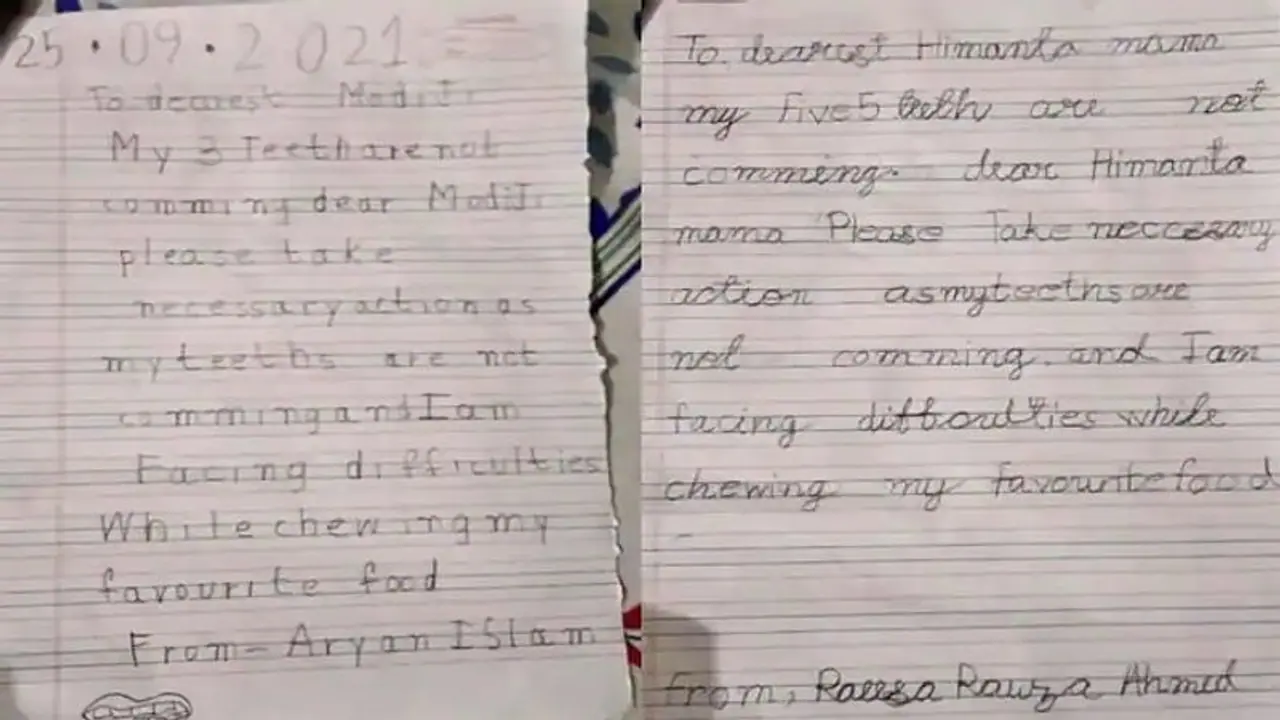 25.09.2021
To dearest Modi Ji
My 3 Teeth are not
comming dear Modi Ji
please take
necessary action as
my teeths are not
comming and I am
Facing difficulties
While chewing my
favourite food
From- Aryan ISlam
To. dearest Himanta mama
my five 5 teeth are not
comming. dear Himanta
mama Please Take neccezary
action as my teeths are
not comming. and I am
facing difficulties while
chewing my favourite food
from, Raeesa Rawza Ahmed